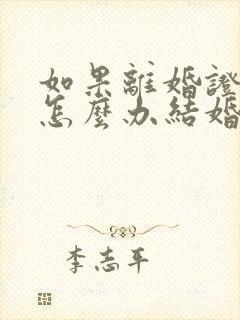 如果離婚證
怎麼办結婚
李志平